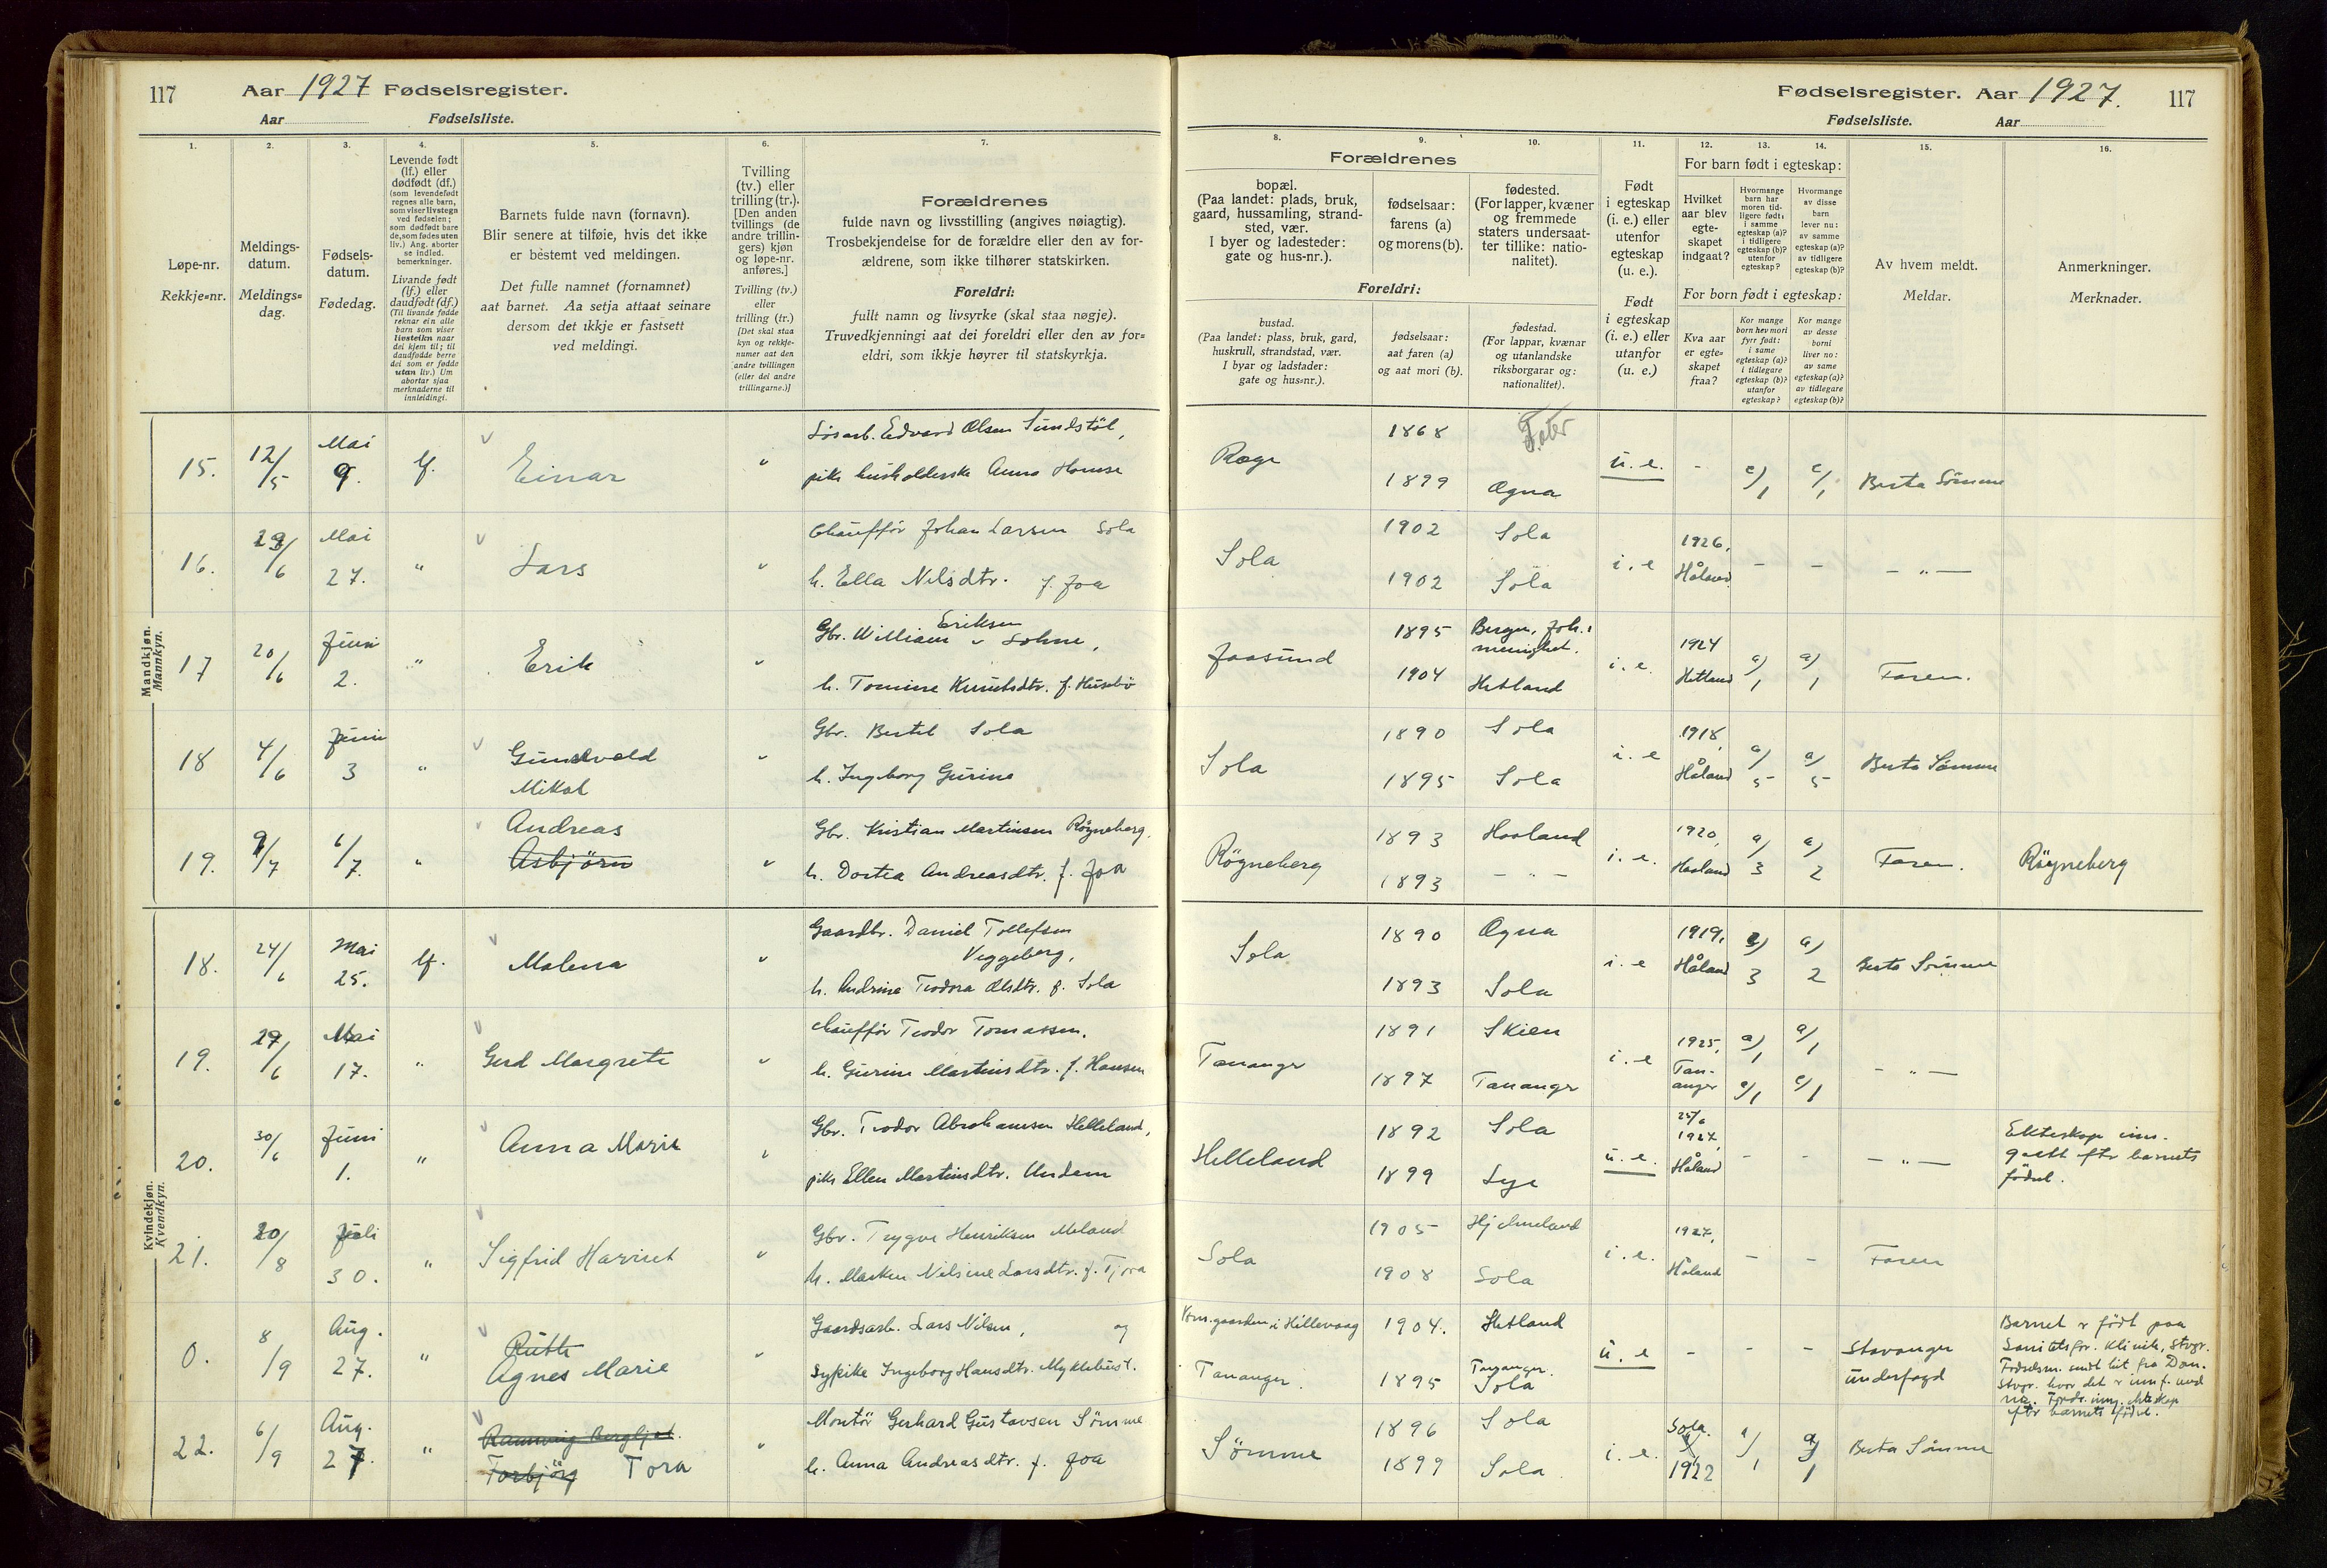 117 Aar 1927 Fødselsregister.
Aar Fødselsliste.
Fødselsregister. Aar 1927. 117
Fødselsliste. Aar
1. 2. 3. 4. 5. 6. 7.
Løpe-nr.
Rekkje=nr.
Meldings-
datum.
Meldings=
dag.
Fødsels-
datum.
Fødedag.
Levende født
(lf.) eller
dødfødt (df.)
(som levendefødt
regnes alle barn,
som viser livstegn
ved fødselen;
som dødfødt bare
de, som fødes uten
liv.) Ang. aborter
se indled.
bemerkninger.
Livande født
(lf.) eller
daudfødt (df.)
(Til livande fødde
reknar ein alle
barn som viser
livsteikn naar
dei kjem til; til
daudfødde berre
dei som er fødde
utan liv.) Um
abortar sjaa
merknaderne til
innleidingi.
Barnets fulde navn (fornavn).
Blir senere at tilføie, hvis det ikke
er bestemt ved meldingen.
Det fulle namnet (fornamnet)
aat barnet. Aa setja attaat seinare
dersom det ikkje er fastsett
ved meldingi.
Tvilling
(tv.) eller
trilling (tr.).
[Den anden
tvillings (de
andre trillin-
gers) kjøn
og løpe-nr.
anføres.]
Tvilling (tv.)
eller
trilling (tr.)
[Det skal staa
kyn og rekkje-
numer aat den
andre tvillingen
(eller dei andre
trillingarne.)]
Forældrenes
fulde navn og livsstilling (angives nøiagtig).
Trosbekjendelse for de forældre eller den av for-
ældrene, som ikke tilhører statskirken.
Foreldri:
fullt namn og livsyrke (skal staa nøgje).
Truvedkjenningi aat dei foreldri eller den av for=
eldri, som ikkje høyrer til statskyrkja.
8. 9. 10. 11. 12. 13. 14. 15. 16.
Forældrenes
bopæl.
(Paa landet: plads, bruk,
gaard, hussamling, strand-
sted, vær.
I byer og ladesteder:
gate og hus-nr.).
fødselsaar:
farens (a)
og morens (b).
fødested.
(For lapper, kvæner
og fremmede
staters undersaat-
ter tillike: natio-
nalitet).
Foreldri:
bustad.
(Paa landet: plass, bruk, gard,
huskrull, strandstad, vær.
I byar og ladstader:
gate og hus=nr.).
fødselsaar:
aat faren (a)
og aat mori (b).
fødestad.
(For lappar, kvænar
og utanlandske
riksborgarar og:
nationalitet).
Født
i egteskap
(i. e.) eller
utenfor
egteskap
(u. e.).
Født
i egteskap
(i. e.) eller
utanfor
(u. e.)
For barn født i egteskap:
Hvilket
aar blev
egte-
skapet
indgaat?
Hvormange
barn har
moren tid-
ligere født:
i samme
egteskap (a)?
i tidligere
egteskap (b)?
utenfor
egteskap?
Hvormange
av disse
barn
lever nu:
av samme
egteskap (a)?
av tidligere
egteskap (b)?
For born født i egteskap:
Kva aar
er egte=
skapet
fraa?
Kor mange
born hev mori
fyrr født:
i same
egteskap (a)?
i tidlegare
egteskap (b)?
utanfor
egteskap?
Kor mange
av desse
borni
liver no:
av same
egteskap (a)?
av tidlegare
egteskap (b)?
Av hvem meldt.
Meldar.
Anmerkninger.
Merknader.
Mandkjøn.
Mannkyn.
15. 12/5 Mai 9. lf. Einar " Løsarb. Edvard Olsen Sundstøl,
pike husholderske Anna Homse
Ræge 1868 1899 Ogna u. e. - c/1 c/1 Berta Sömme
16. 29/6 Mai 27. " Lars " Chauffør Johan Larsen Sola
h. Ella Nilsdtr. f. Joa
Sola 1902 Sola 1902 Sola i. e 1926, Håland - - - " -
17 20/6 Juni 2. " Erik " Gbr. William Eriksen Sohne,
h. Tomine Knutsdtr. f. Husebö
Joasund 1895 Bergen, Joh.
menighet. 1904 Hetland i. e 1924 Hetland a/1 a/1 Faren.
18 4/6 Juni 3 " Gunvald
Mikal " Gbr. Bertel Sola
h. Ingeborg Gurine
Sola 1890 Sola 1895 Sola i. e 1918, Håland a/5 a/5 Berta Sömme
19. 9/7 6/7. " Andreas
Asbjörn " Gbr. Kristian Martinsen Rögneberg.
h. Dortea Andreasdtr. f. Joa
Rögneberg 1893 Haaland 1893 - " - i. e. 1920, Haaland a/3 a/2 Faren. Rögneberg
Kvindekjøn.
Kvendkyn.
18. 24/6 Mai 25. lf. Malena " Gaardbr. Daniel Tollefsen
Veggeberg,
h. Andrine Teodora Olsdtr. f. Sola
Sola 1890 Ogna 1893 Sola i. e 1919, Håland a/3 a/2 Berta Sömme
19. 29/6 Mai 17. " Gerd Margrete " Chauffør Teodor Tomassen.
h. Gurine Martinsdtr. f. Hansen
Tananger 1891 Skien 1897 Tananger i. e 1925, Tan-
anger a/1 a/1 c/1 c/1 - " -
20. 30/6 Juni 1. " Anna Marie " Gbr. Teodor Abrahamsen Helleland,
pike Ellen Martinsdtr. Undem
Helleland 1892 Sola 1899 Lye u. e. 25/6 1927, Håland - - - " - Ekteskap inn-
gått efter barnets
födsel.
21. 20/8 Juli 30. " Sigfrid Harriet " Gbr. Trygve Henriksen Meland
h. Marken Nilsine Larsdtr. f. Tjora
Sola 1905 Hjelmeland 1908 Sola i. e. 1927, Håland - - Faren
0. 8/9 Aug. 27. " Ruth
Agnes Marie " Gaardsarb. Lars Nilsen, og
Sypike Ingeborg Hansdtr. Myklebust.
i Hillevaag
Tananger. 1904. Hetland 1895 Tananger.
Sola u. e - - - Stavanger
underfogd Barnet er födt paa
Sanitetsfor. Klinik, Stvgr.
Fødselsm. sendt hit fra Dom.
Stvgr. hvor det er innf. und
no. Foreldr. inng. ekteskap
efter barnets födsel.
22. 6/9 Aug. 27. " Rannveig Bergljot.
Torbjörg Tora " Montör Gerhard Gustavsen Sömme
h. Anna Andreasdtr. f. Joa
Sömme 1896 Sola 1899 Sola. i. e. Sola. 1922 a/1 a/1 Berta Sömme